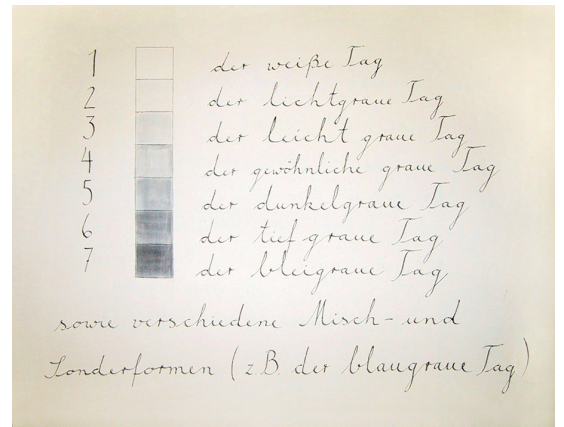 1 der weiße Tag
2 der lichtgraue Tag
3 der leicht graue Tag
4 der gewöhnliche graue Tag
5 der dunkelgraue Tag
6 der tief graue Tag
7 der bleigraue Tag
sowie verschiedene Misch- und
Sonderformen (z.B. der blaugraue Tag)